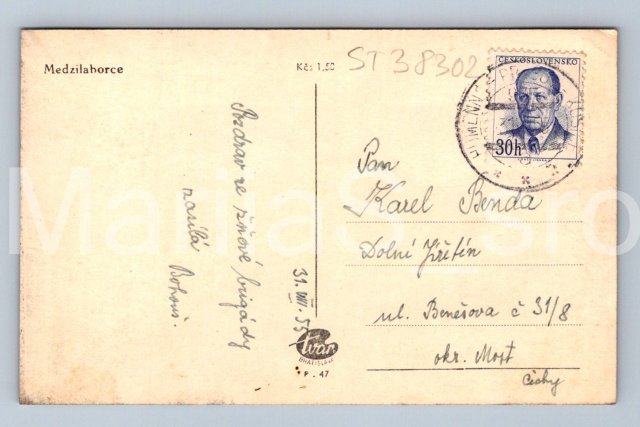 Medzilaborce
Kčs 1,50
ST 38302
ČESKOSLOVENSKO
30h
Pozdrav ze
žňové brigády
zasílá
Bohouš.
31. VIII. 55
Tvar
BRATISLAVA
P. 47
Pan
Karel Benda
Dolní Jiřetín
ul. Benešova č 31/8
okr. Most
Čechy